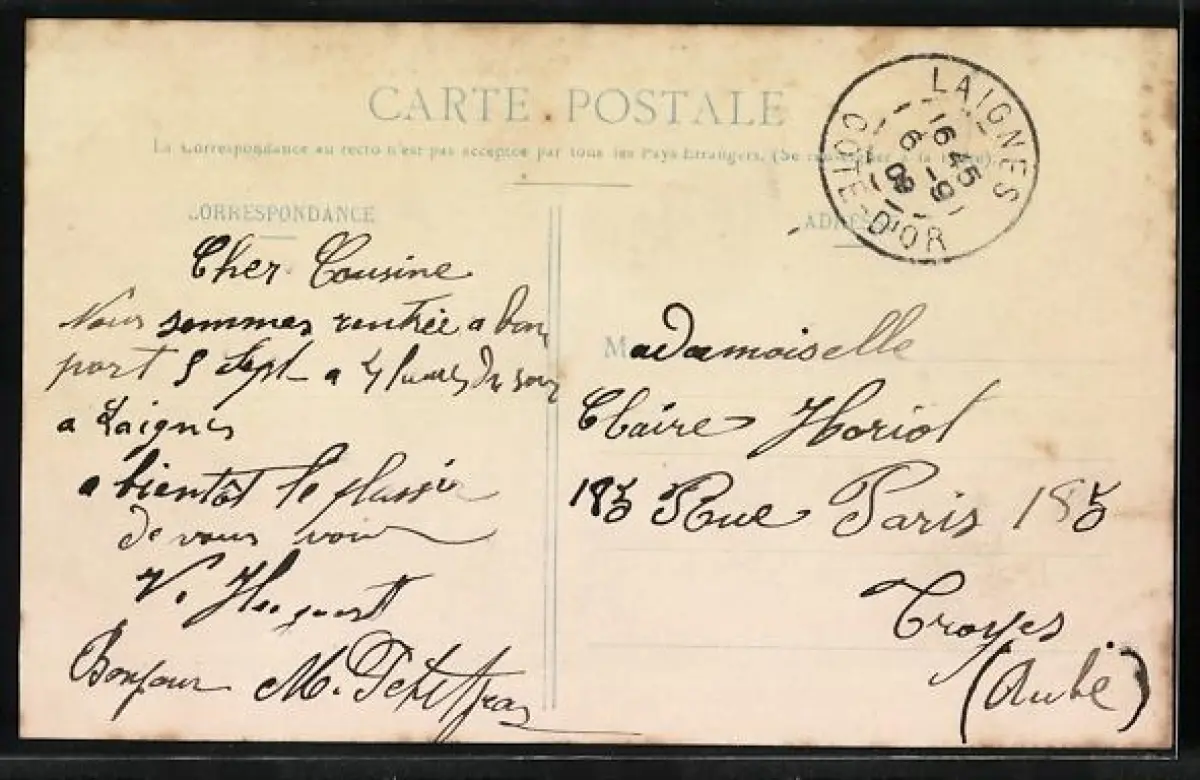 CARTE POSTALE
La Correspondance au recto n'est pas acceptée par tous les Pays Étrangers. (Se renseigner à la Poste).
CORRESPONDANCE
Cher Cousine
Nous sommes rentrée a bon
port 5 Sept a 4 heures du soir
a Laignes
a bientôt le plassir
de vous voir
V.
Bonjour M. Petitjean
LAIGNES
16 45
6 -9
09
COTE-D'OR
ADRESSE
Madamoiselle
Claire Horiot
185 Rue Paris 185
Troyes
(Aube)